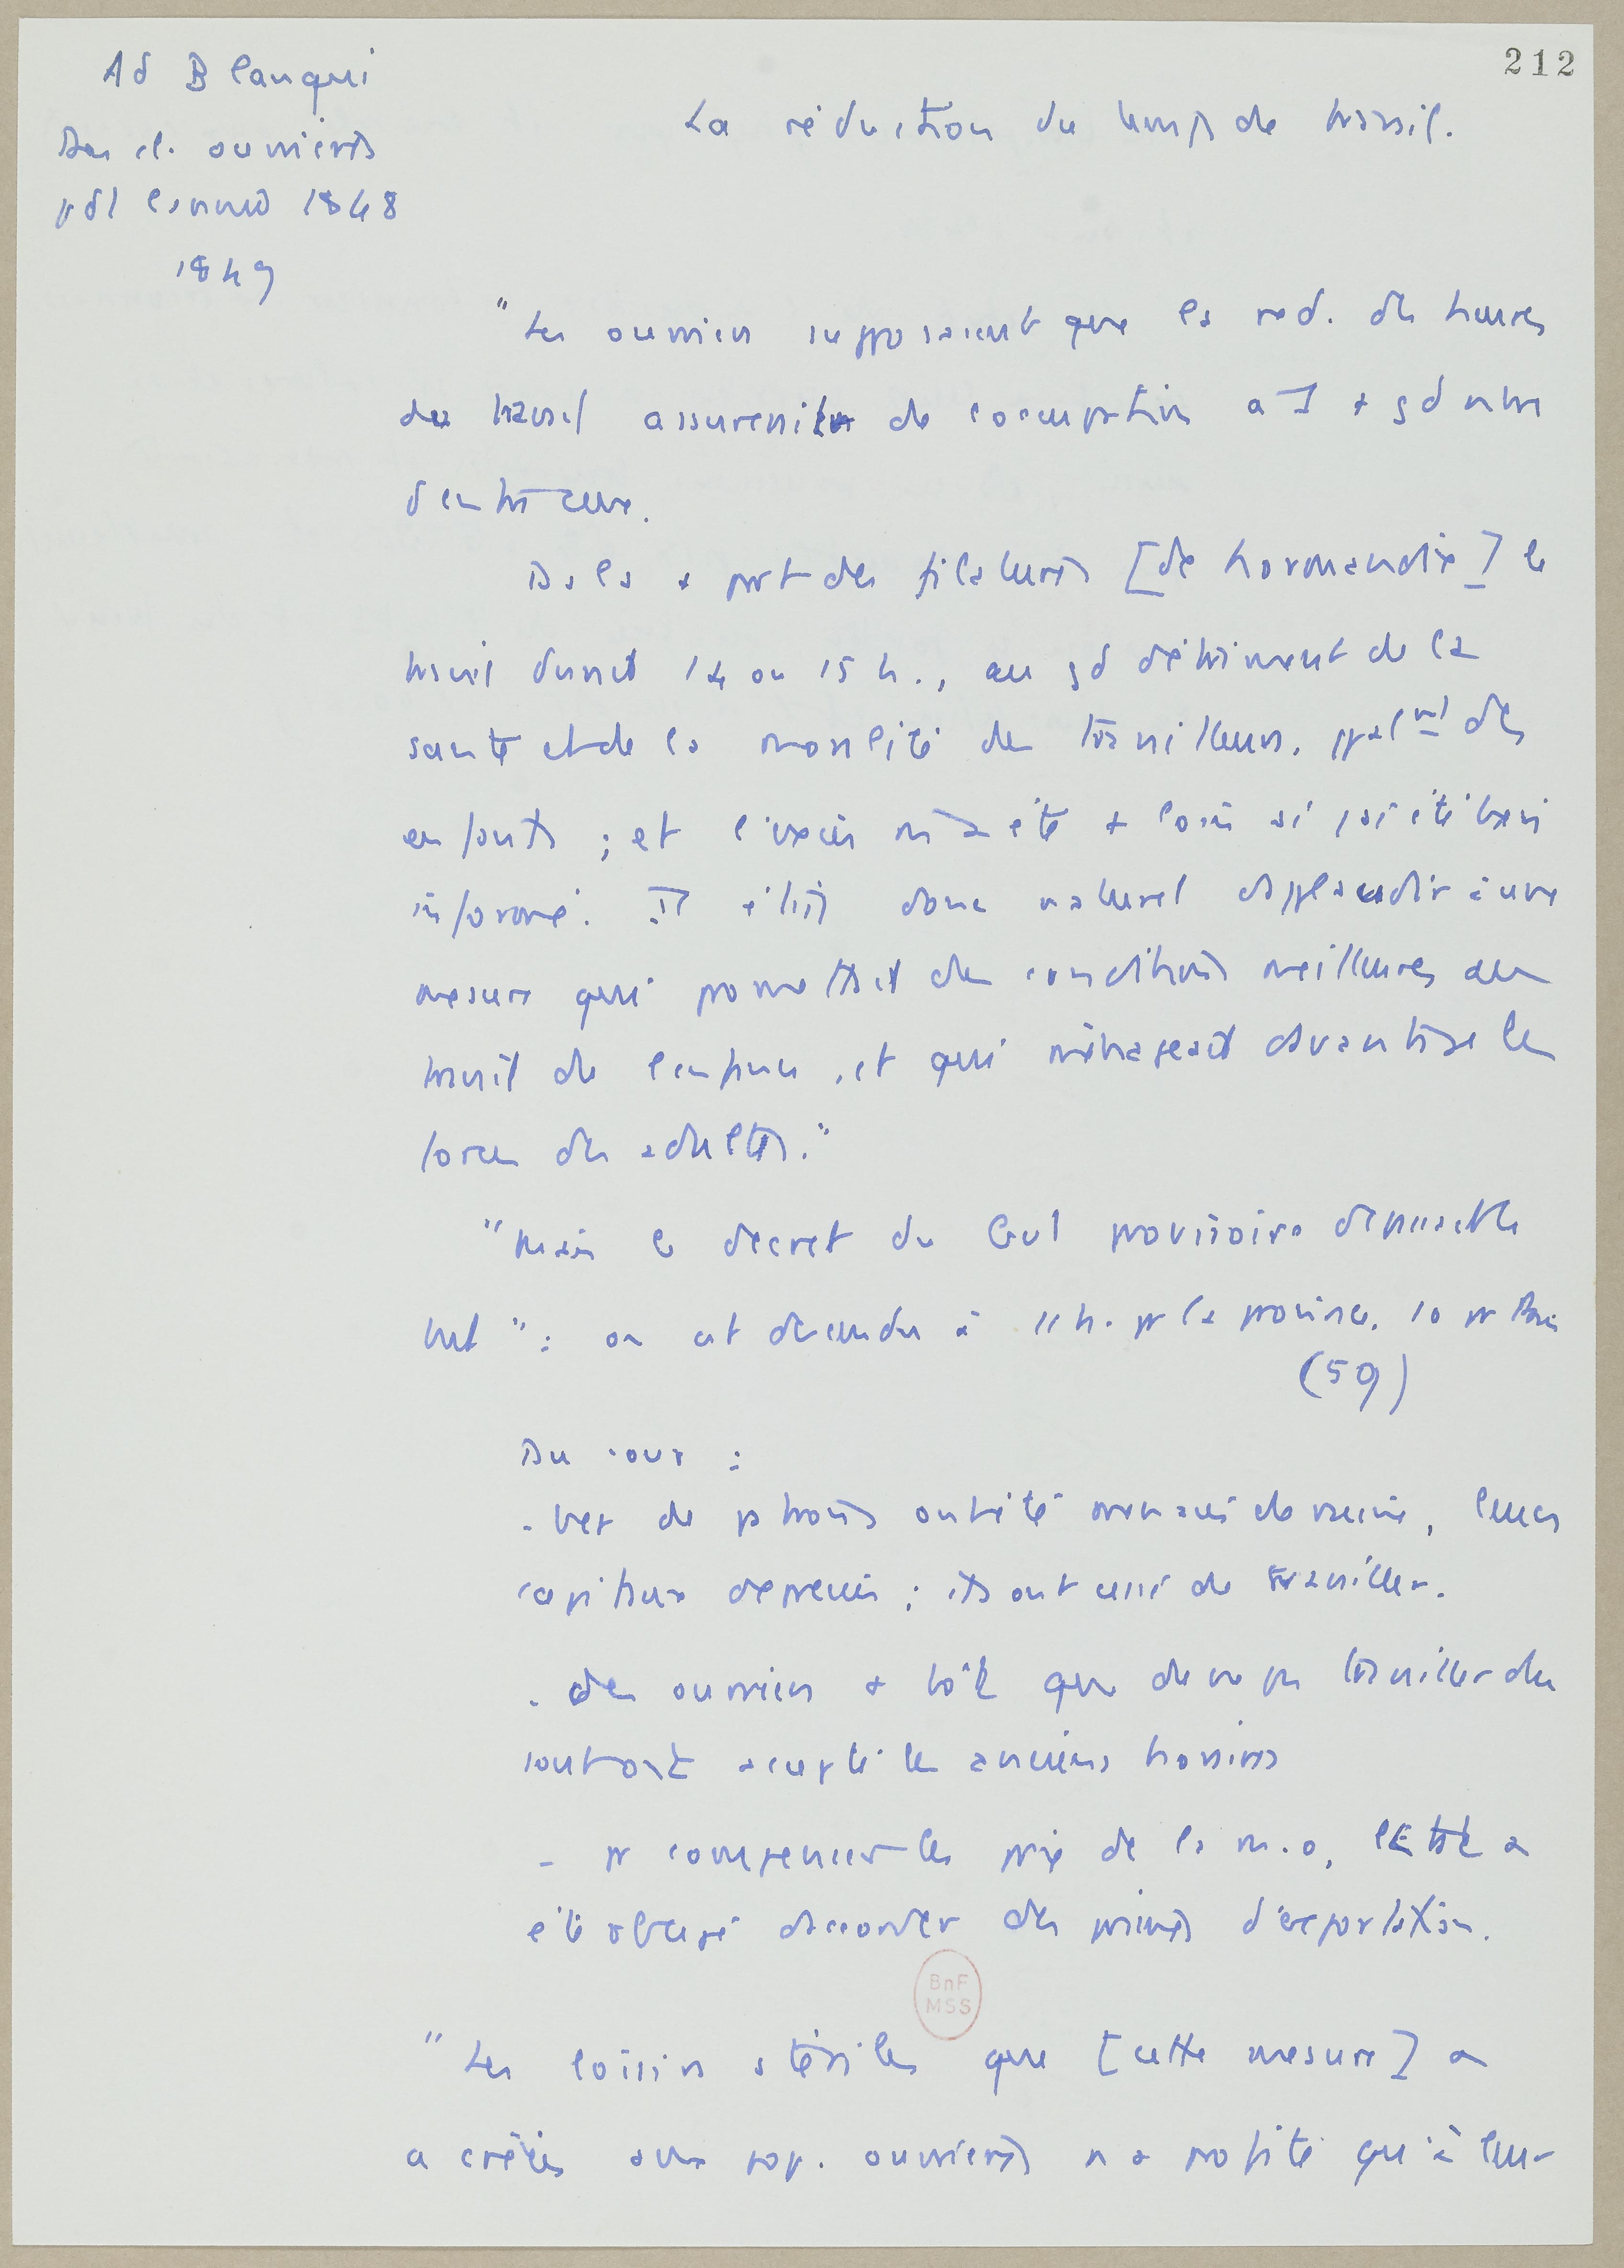 212
Ad Blanqui
Des cl. ouvrières
pdt l'année 1848
1849
La réduction du temps de travail.
"Les ouvriers supposaient que la red. des heures
du travail assurerait de l'occupation a 1 + gd nbre
d'entre eux.
Ds la + part des filatures [de Normandie] le
travail durait 14 ou 15 h., au gd détriment de la
santé et de la moralité des travailleurs, ppalmt des
enfants ; et l'excès m'a été + loin si j'ai été bien
informé. Il était donc naturel d'applaudir à une
mesure qui promettait des conditions meilleures au
travail de l'enfance, et qui ménageait davantage les
forces des adultes."
"Mais le décret du Gvt provisoire dépassait le
but" : on est descendu à 11 h. pr la province, 10 pr Paris
(59)
Du coup :
- bcp de patrons ont été menacés de ruine, leurs
capitaux dépréciés ; ils ont cessé de travailler.
- des ouvriers + tôt que de ne pas travailler du
tout ont accepté les anciens horaires
- pr compenser les prix de la m.o, l'Etat a
été obligé d'accorder des primes d'exportation.
BnF
MSS
"Les loisirs stériles que [cette mesure] a
a créés aux pop. ouvrières n'a profité qu'à leur